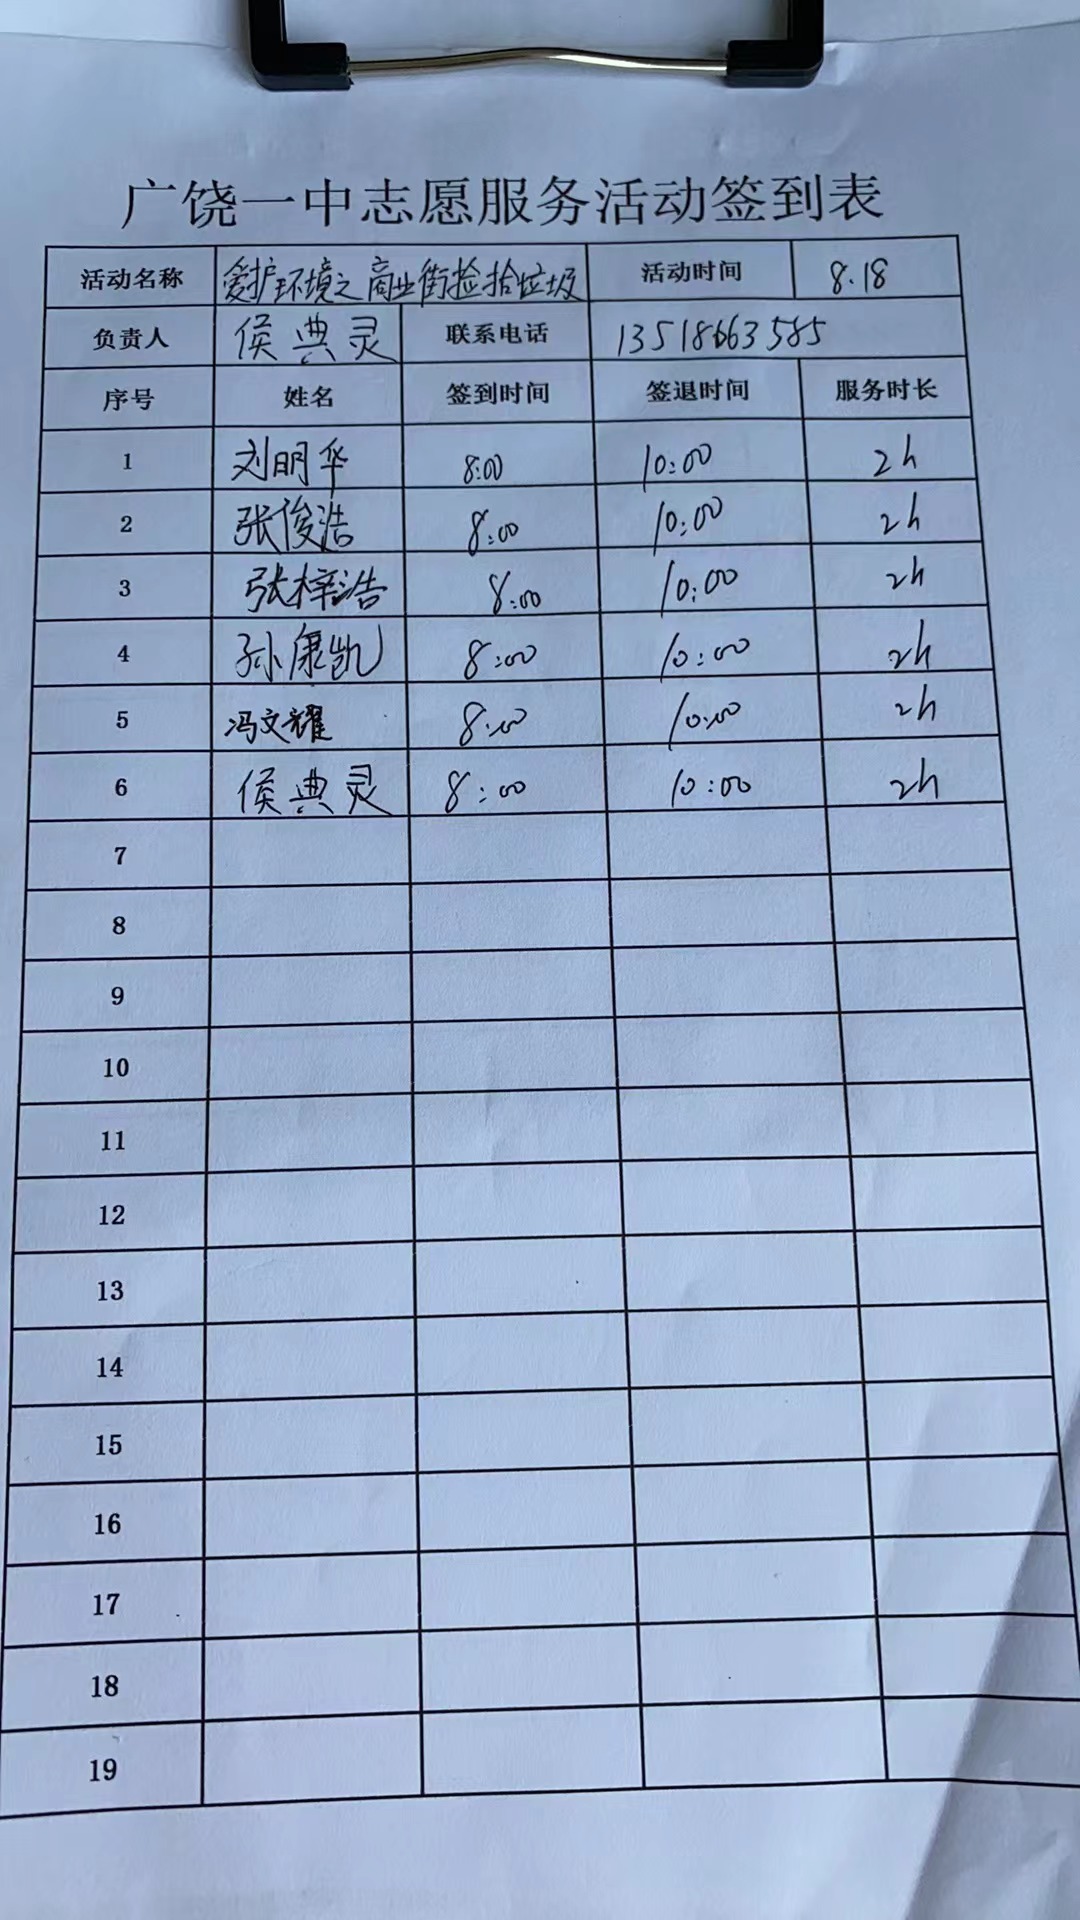 广饶一中志愿服务活动签到表
活动名称 爱护环境之商业街捡拾垃圾 活动时间 8.18
负责人 侯典灵 联系电话 13518663585
序号 姓名 签到时间 签退时间 服务时长
1 刘明华 8:00 10:00 2h
2 张俊浩 8:00 10:00 2h
3 张梓浩 8:00 10:00 2h
4 孙康凯 8:00 10:00 2h
5 冯文耀 8:00 10:00 2h
6 侯典灵 8:00 10:00 2h
7
8
9
10
11
12
13
14
15
16
17
18
19